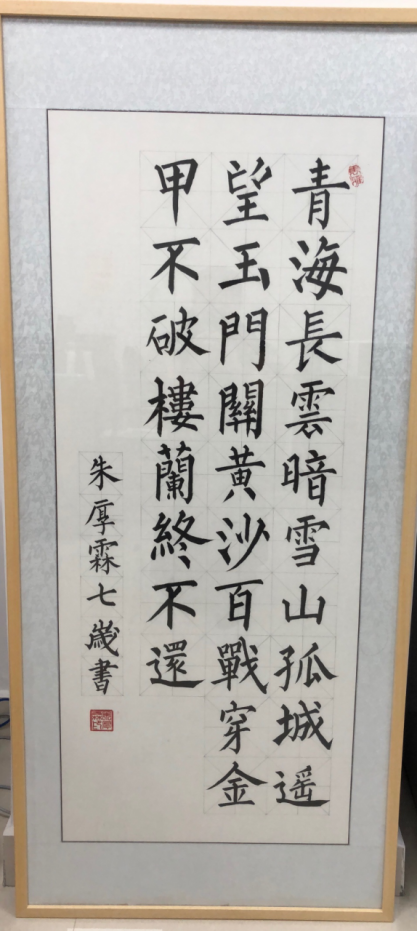 青海長雲暗雪山孤城遥
望玉門關黄沙百戰穿金
甲不破樓蘭終不還
朱厚霖七歲書